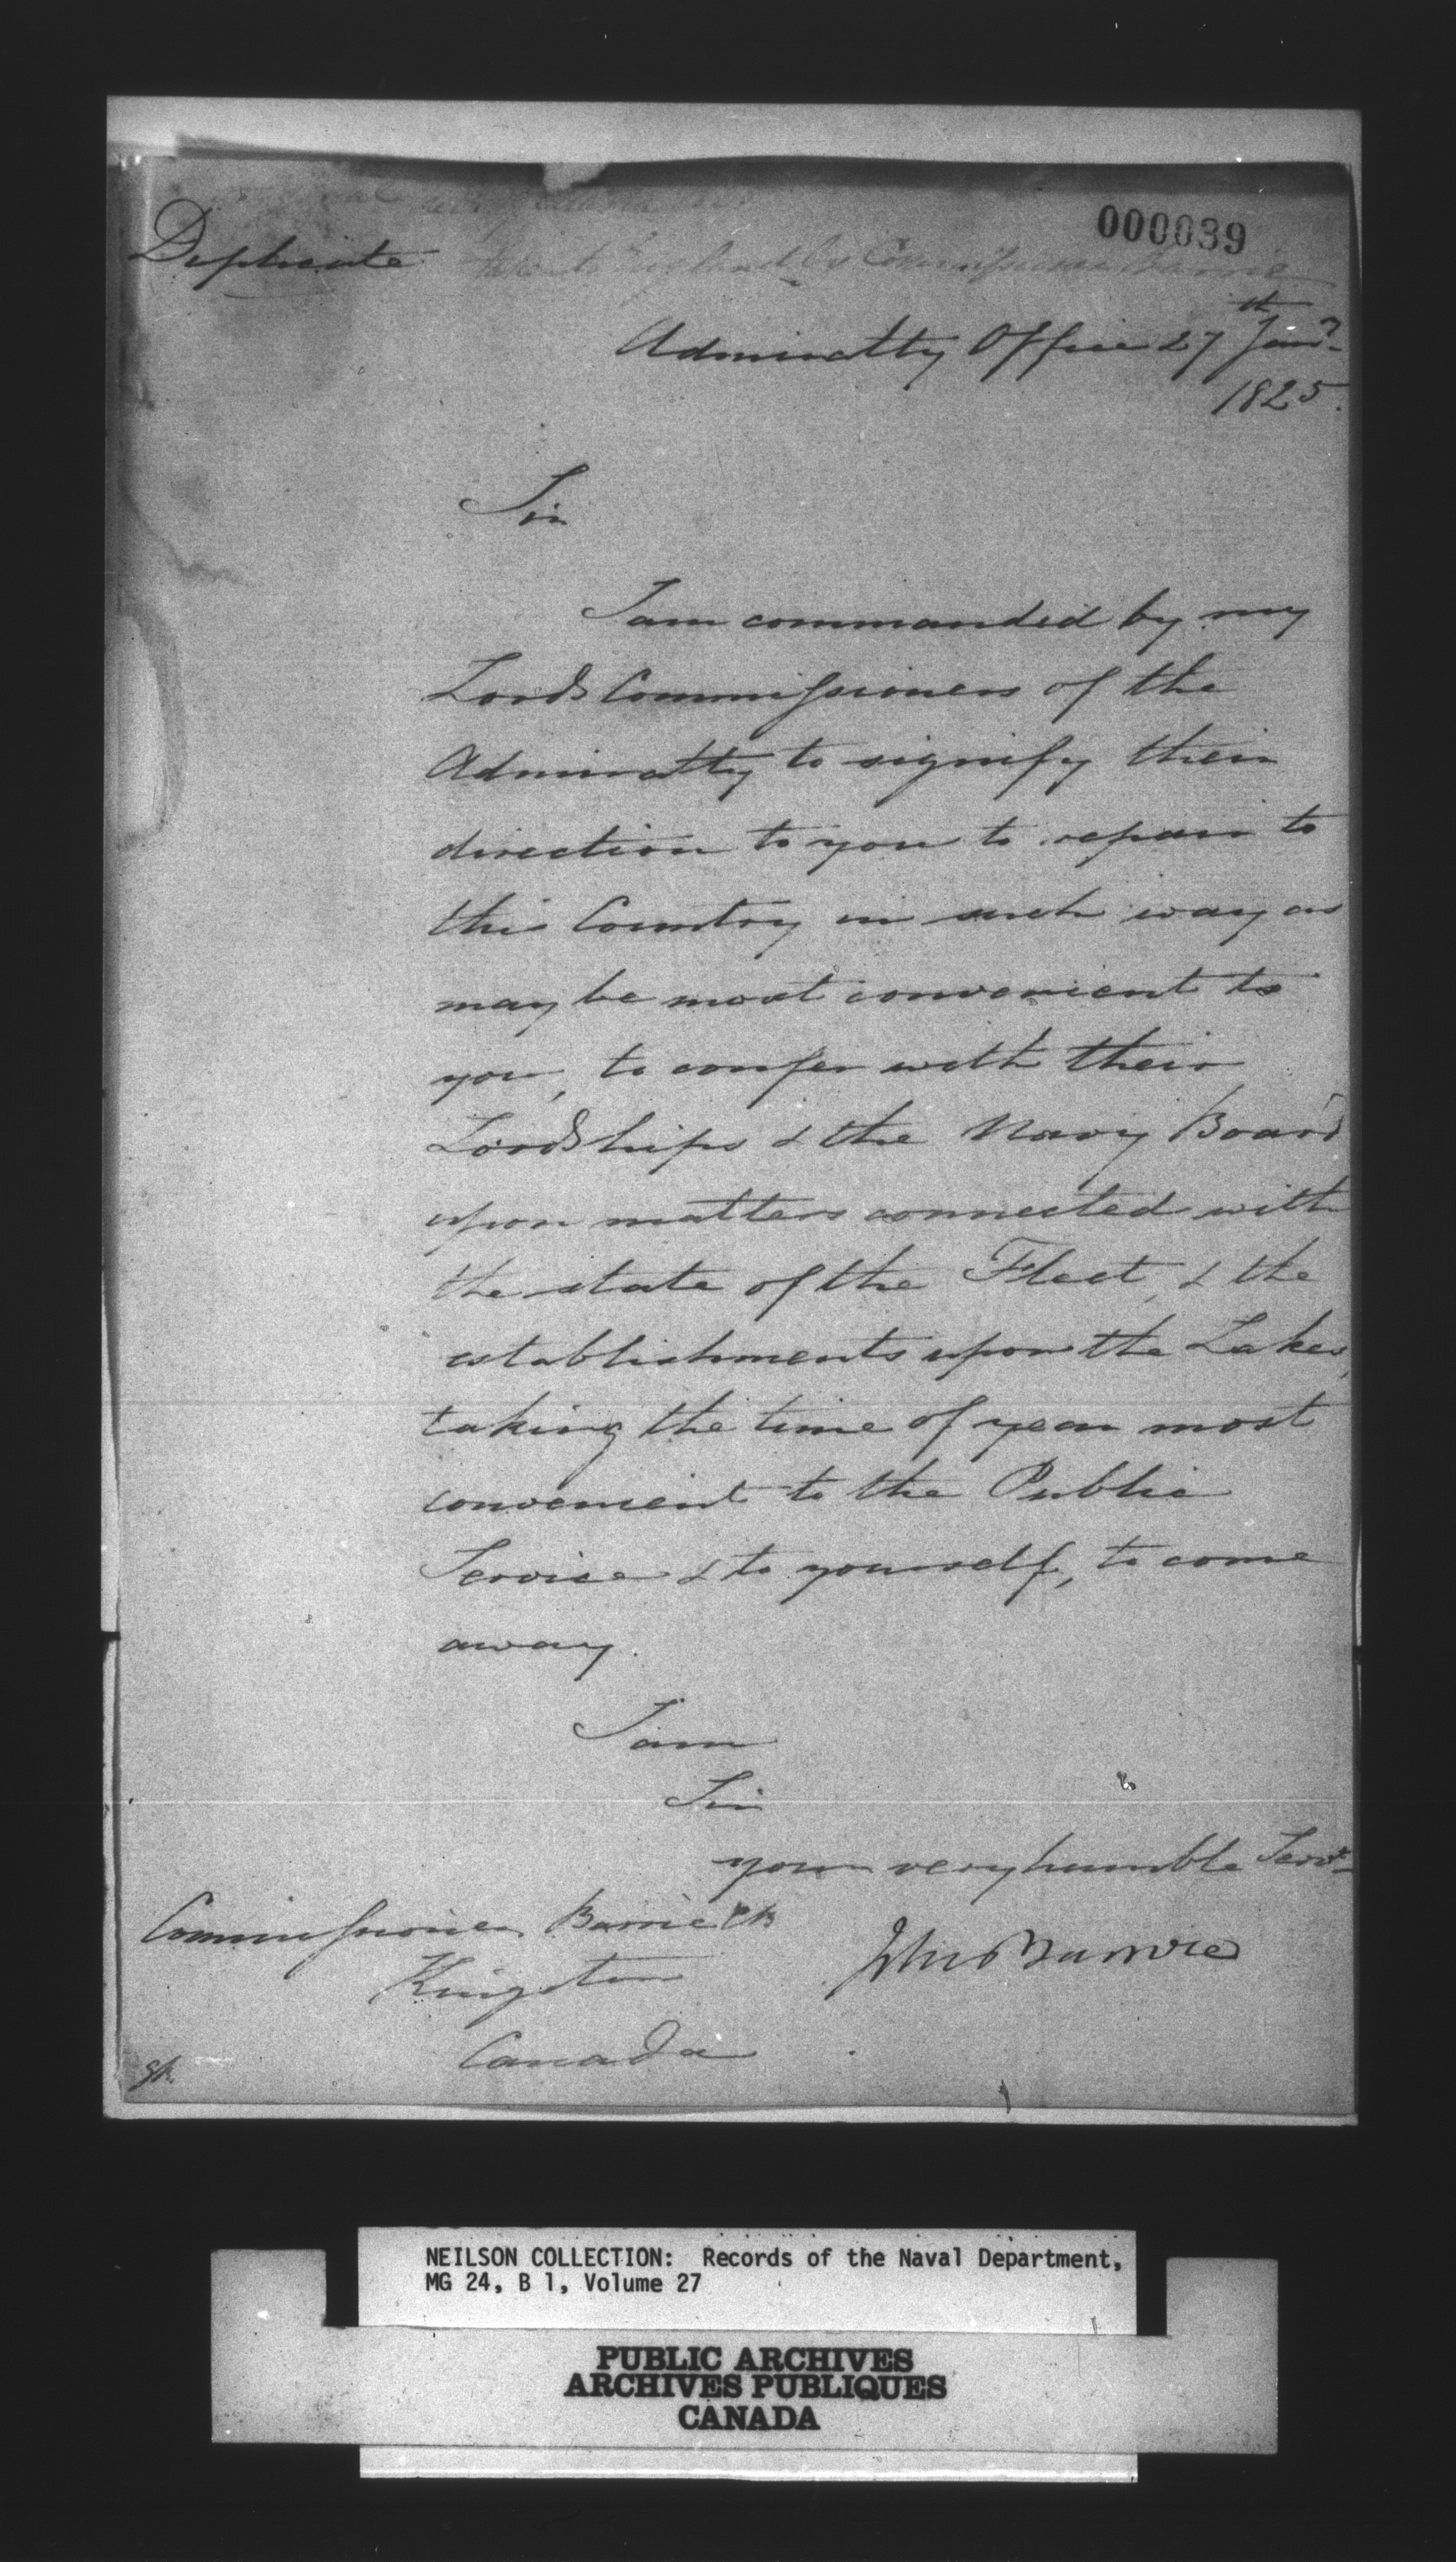 000039
Duplicate
taken to England by Commissioner Barrie
Admiralty Office 27th Jany
1825.
Sir
I am commanded by my
Lords Commissioners of the
Admiralty to signify their
direction to you to repair to
this Country in such way as
may be most convenient to
you, to confer with their
Lordships & the Navy Board
upon matters connected with
the state of the Fleet, & the
establishments upon the Lakes,
taking the time of year most
convenient to the Public
Service & to yourself, to come
away.
I am
Sir
your very humble Servt
Commissioner Barrie CB
John Barrow
Kingston
Canada
NEILSON COLLECTION: Records of the Naval Department,
MG 24, B 1, Volume 27
PUBLIC ARCHIVES
ARCHIVES PUBLIQUES
CANADA